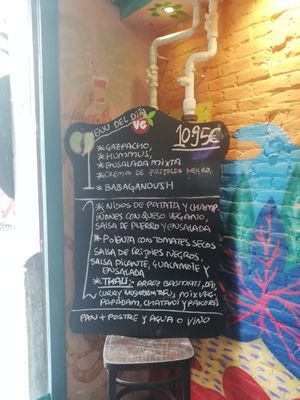 MENU DEL DIA
VG
10.95€
1
* GAZPACHO,
* HUMMUS,
* ENSALADA MIXTA
* CREMA DE FRIJOLES NEGRO,
* BABAGANOUSH
2
* NIDOS DE PATATA Y CHAMP
IÑONES CON QUESO VEGANO,
SALSA DE PUERRO Y ENSALADA
* POLENTA CON TOMATES SECOS
SALSA DE FRIJOLES NEGROS,
SALSA PICANTE, GUACAMOLE Y
ENSALADA
* THALI:- ARROZ BASMATI, DAL,
CURRY MIX VEG,
PAPADAM, CHATANI Y PAKORAS
PAN + POSTRE Y AGUA O VINO